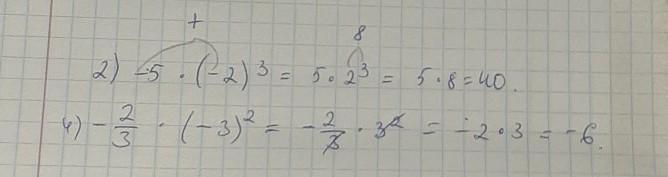 + 8
2) -5 · (-2)³ = 5 · 2³ = 5 · 8 = 40.
4) -2/3 · (-3)² = -2/3 · 3² = -2 · 3 = -6.